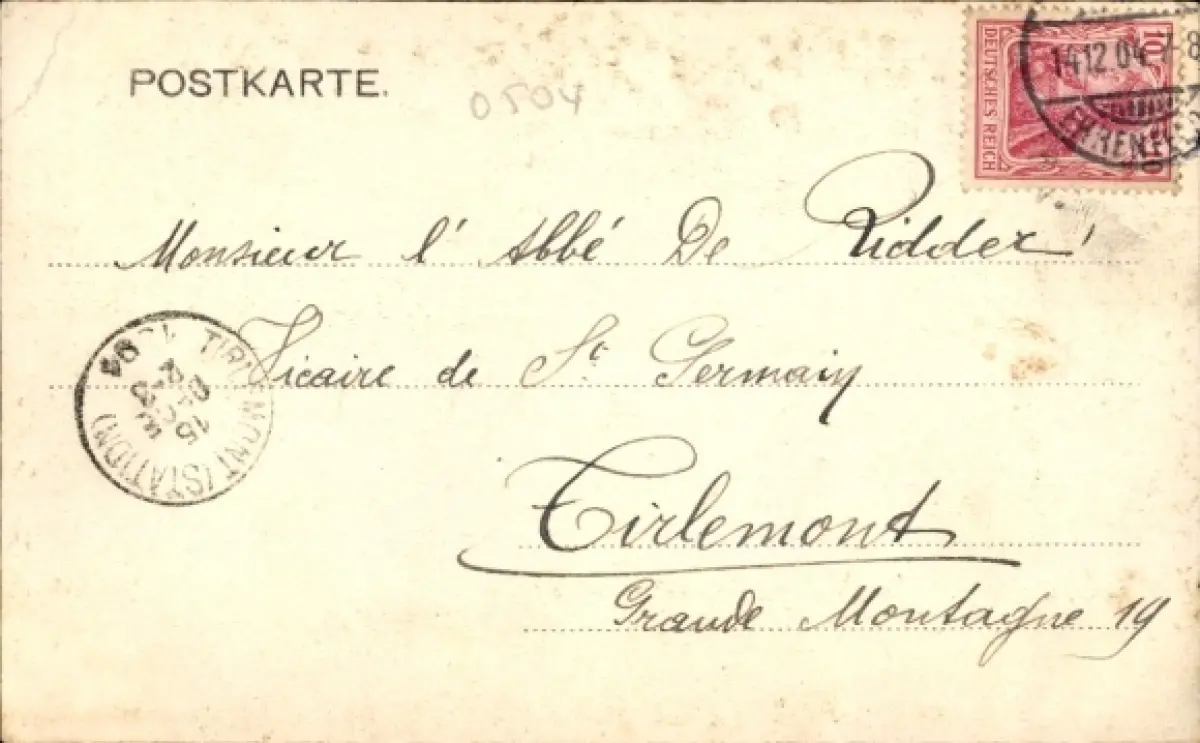 POSTKARTE.
0504
10
DEUTSCHES REICH
14.12.04 7-8
EHRENF
Monsieur l'Abbé De Ridder
Vicaire de St Germain
Tirlemont
Grande Montagne 19
TIRLEMONT (STATION)
15
DEC
04